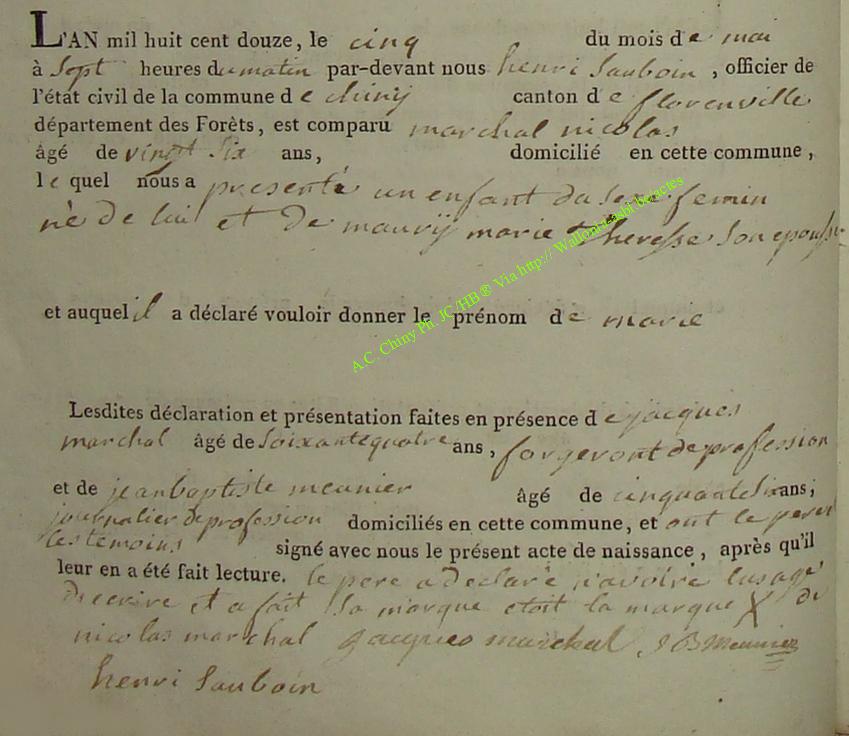 L'AN mil huit cent douze, le cinq du mois de mai
à Sept heures du matin par-devant nous henri Sauboin, officier de
l'état civil de la commune de chiny canton de florenville
département des Forêts, est comparu marchal nicolas
âgé de vingt Six ans, domicilié en cette commune,
le quel nous a presenté un enfant du sexe femin
né de lui et de maury marie Theresse Son epouse
et auquel il a déclaré vouloir donner le prénom de marie
Lesdites déclaration et présentation faites en présence de jacques
marchal âgé de Soixante quatre ans, forgeront de profession
et de jean baptiste meunier âgé de cinquante Six ans,
journalier de profession domiciliés en cette commune, et ont le pere
les temoins signé avec nous le présent acte de naissance, après qu'il
leur en a été fait lecture. le pere a declaré n'avoire lusage
decrire et a fait Sa marque etoit la marque X de
nicolas marchal jacques marchal J B Meunier
henri Sauboin
A.C. Chiny Ph. JC/HB ® Via http://